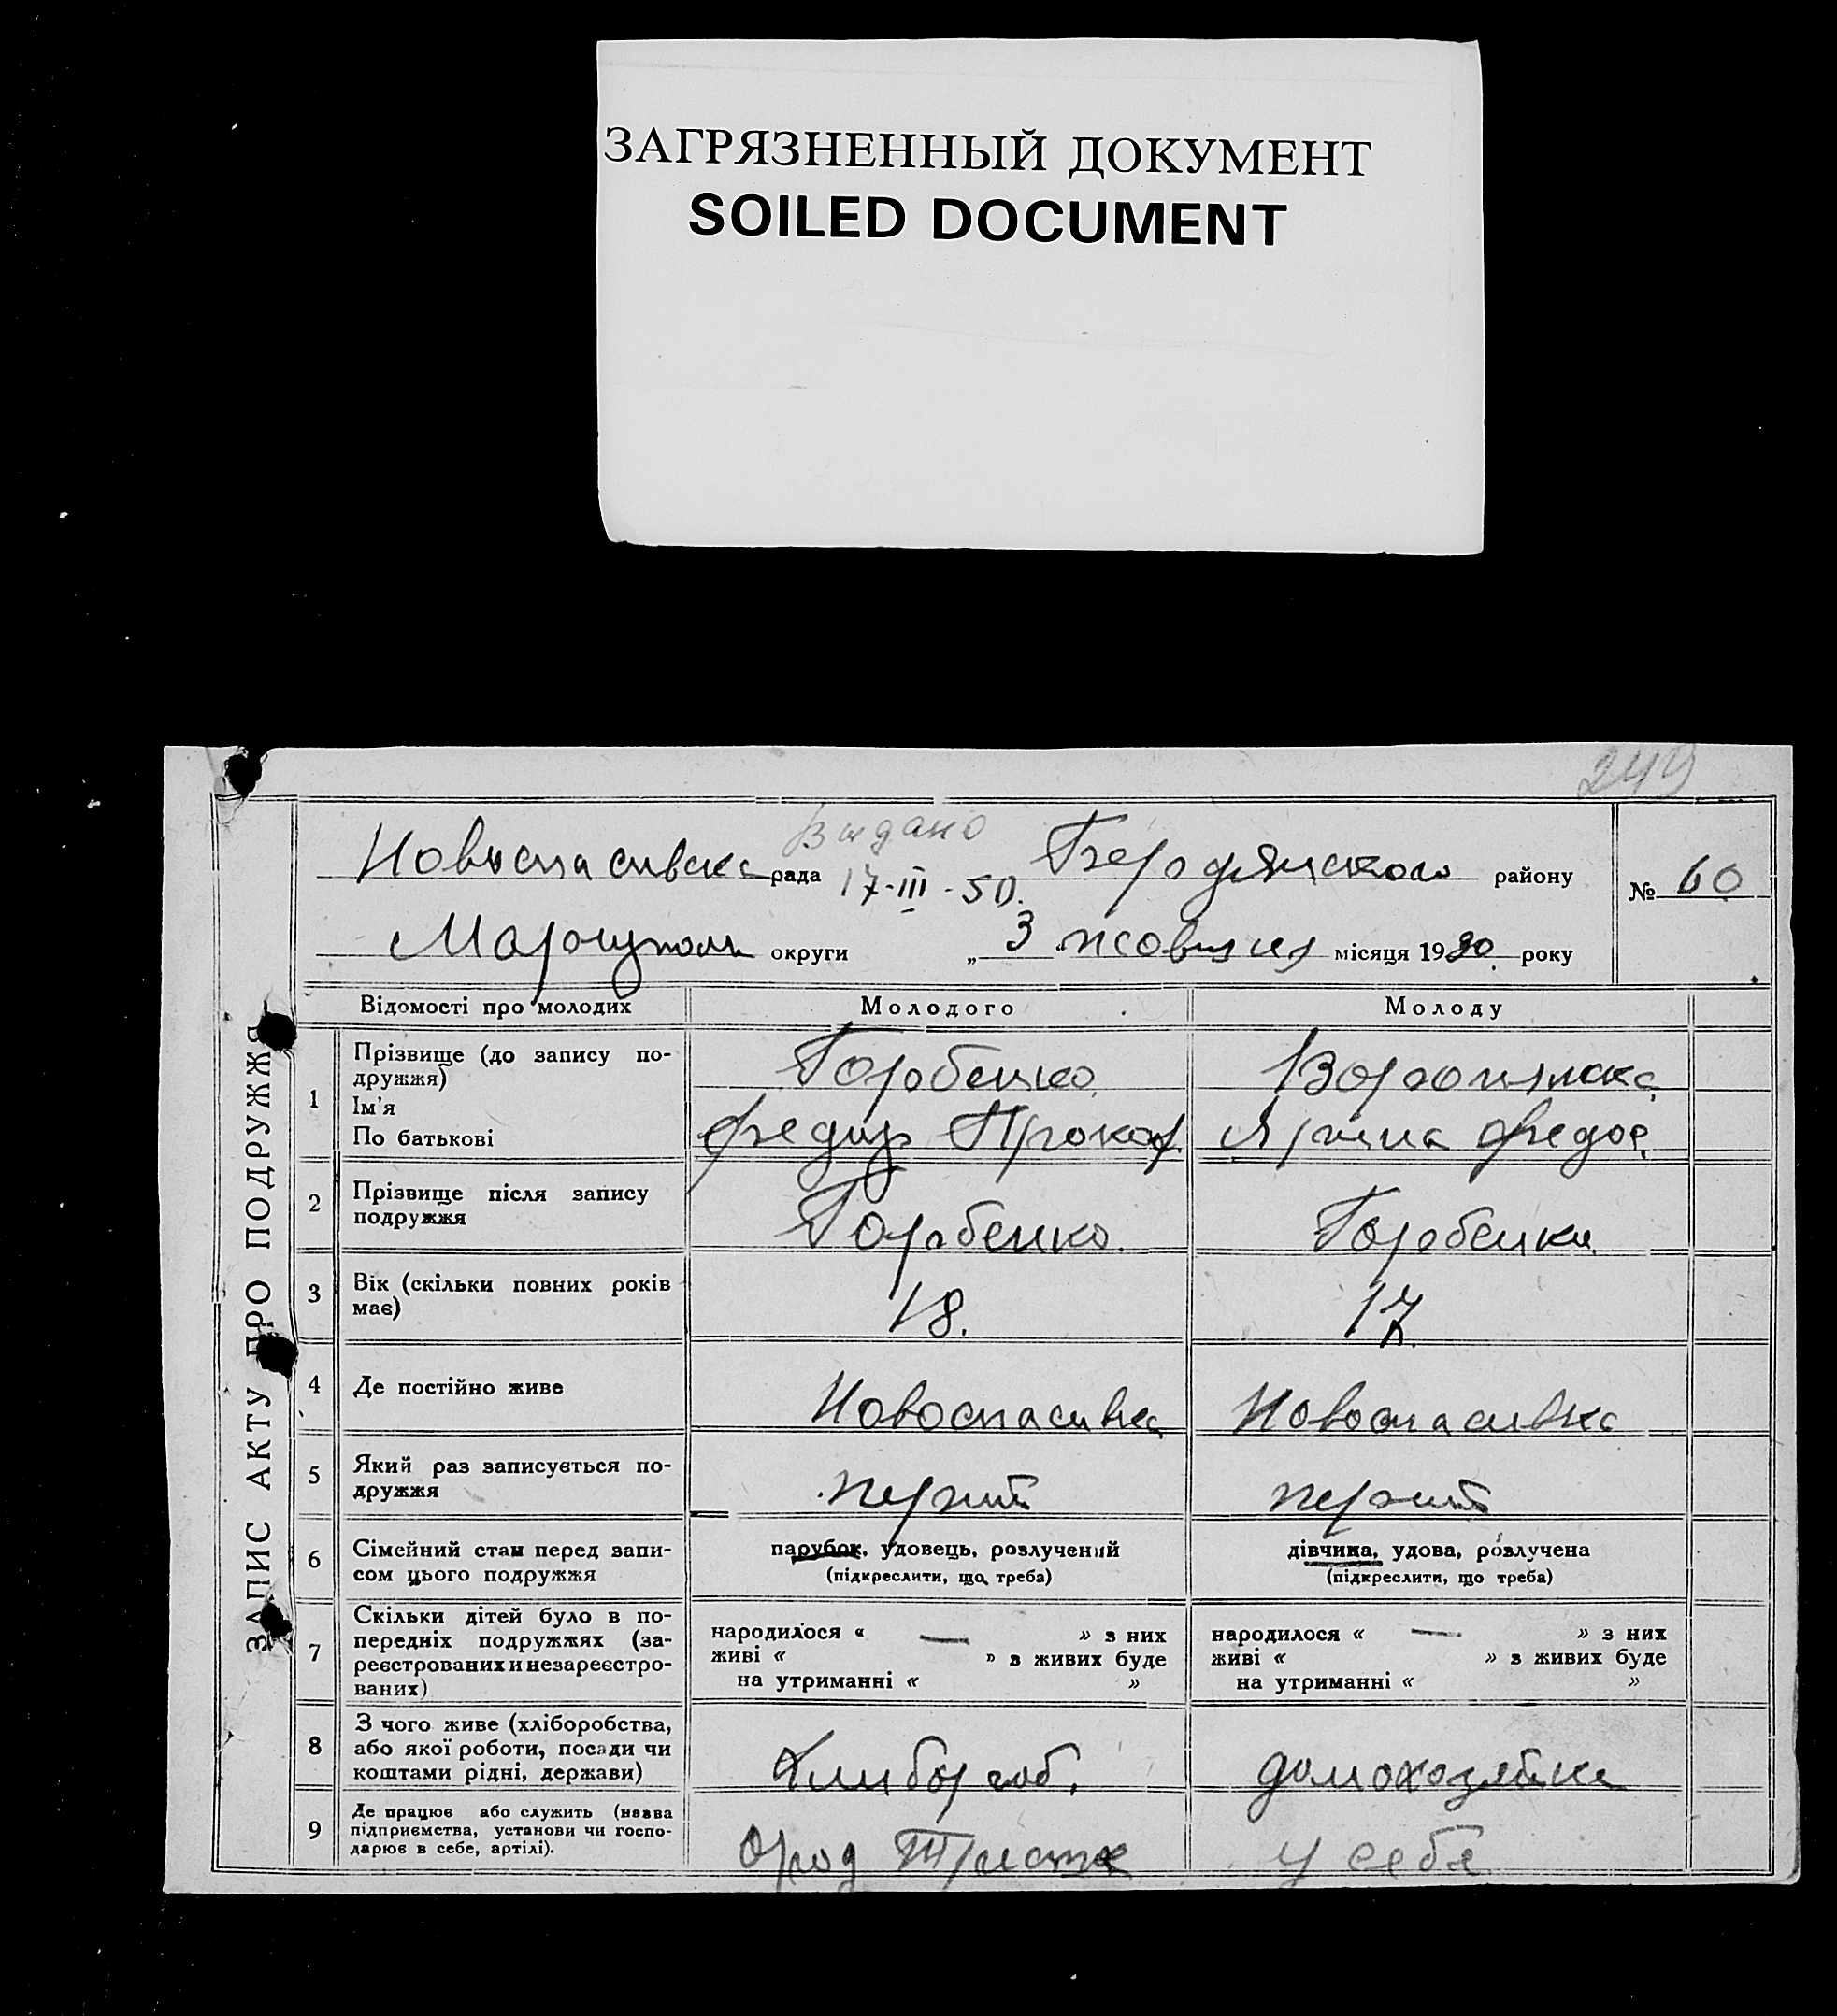 ЗАГРЯЗНЕННЫЙ ДОКУМЕНТ
SOILED DOCUMENT
249
Видано
Новоспасивска рада 17-III-50. Бердянского району № 60
Мариуполь округи „ 3 жовтня місяця 1930 року
ЗАПИС АКТУ ПРО ПОДРУЖЖЯ
Відомості про молодих Молодого Молоду
1 Прізвище (до запису по-
дружжя) Горбенко
Ім'я
По батькові Федир Прокоф. Ярина Федор.
2 Прізвище після запису
подружжя Горбенко. Горбенко
3 Вік (скільки повних років
має) 18. 17.
4 Де постійно живе Новоспасивка Новоспасивка
5 Який раз записується по-
дружжя перший перший
6 Сімейний стан перед запи-
сом цього подружжя парубок, удовець, розлучений дівчина, удова, розлучена
(підкреслити, що треба) (підкреслити, що треба)
7 Скільки дітей було в по-
передніх подружжях (за-
реєстрованих и незареєстро-
ваних) народилося « — » з них народилося « — » з них
живі « » з живих буде живі « » з живих буде
на утриманні « » на утриманні « »
8 З чого живе (хліборобства,
або якої роботи, посади чи
коштами рідні, держави) Хлибороб. домохозяйка
9 Де працює або служить (назва
підприємства, установи чи госпо-
дарює в себе, артілі). у себя